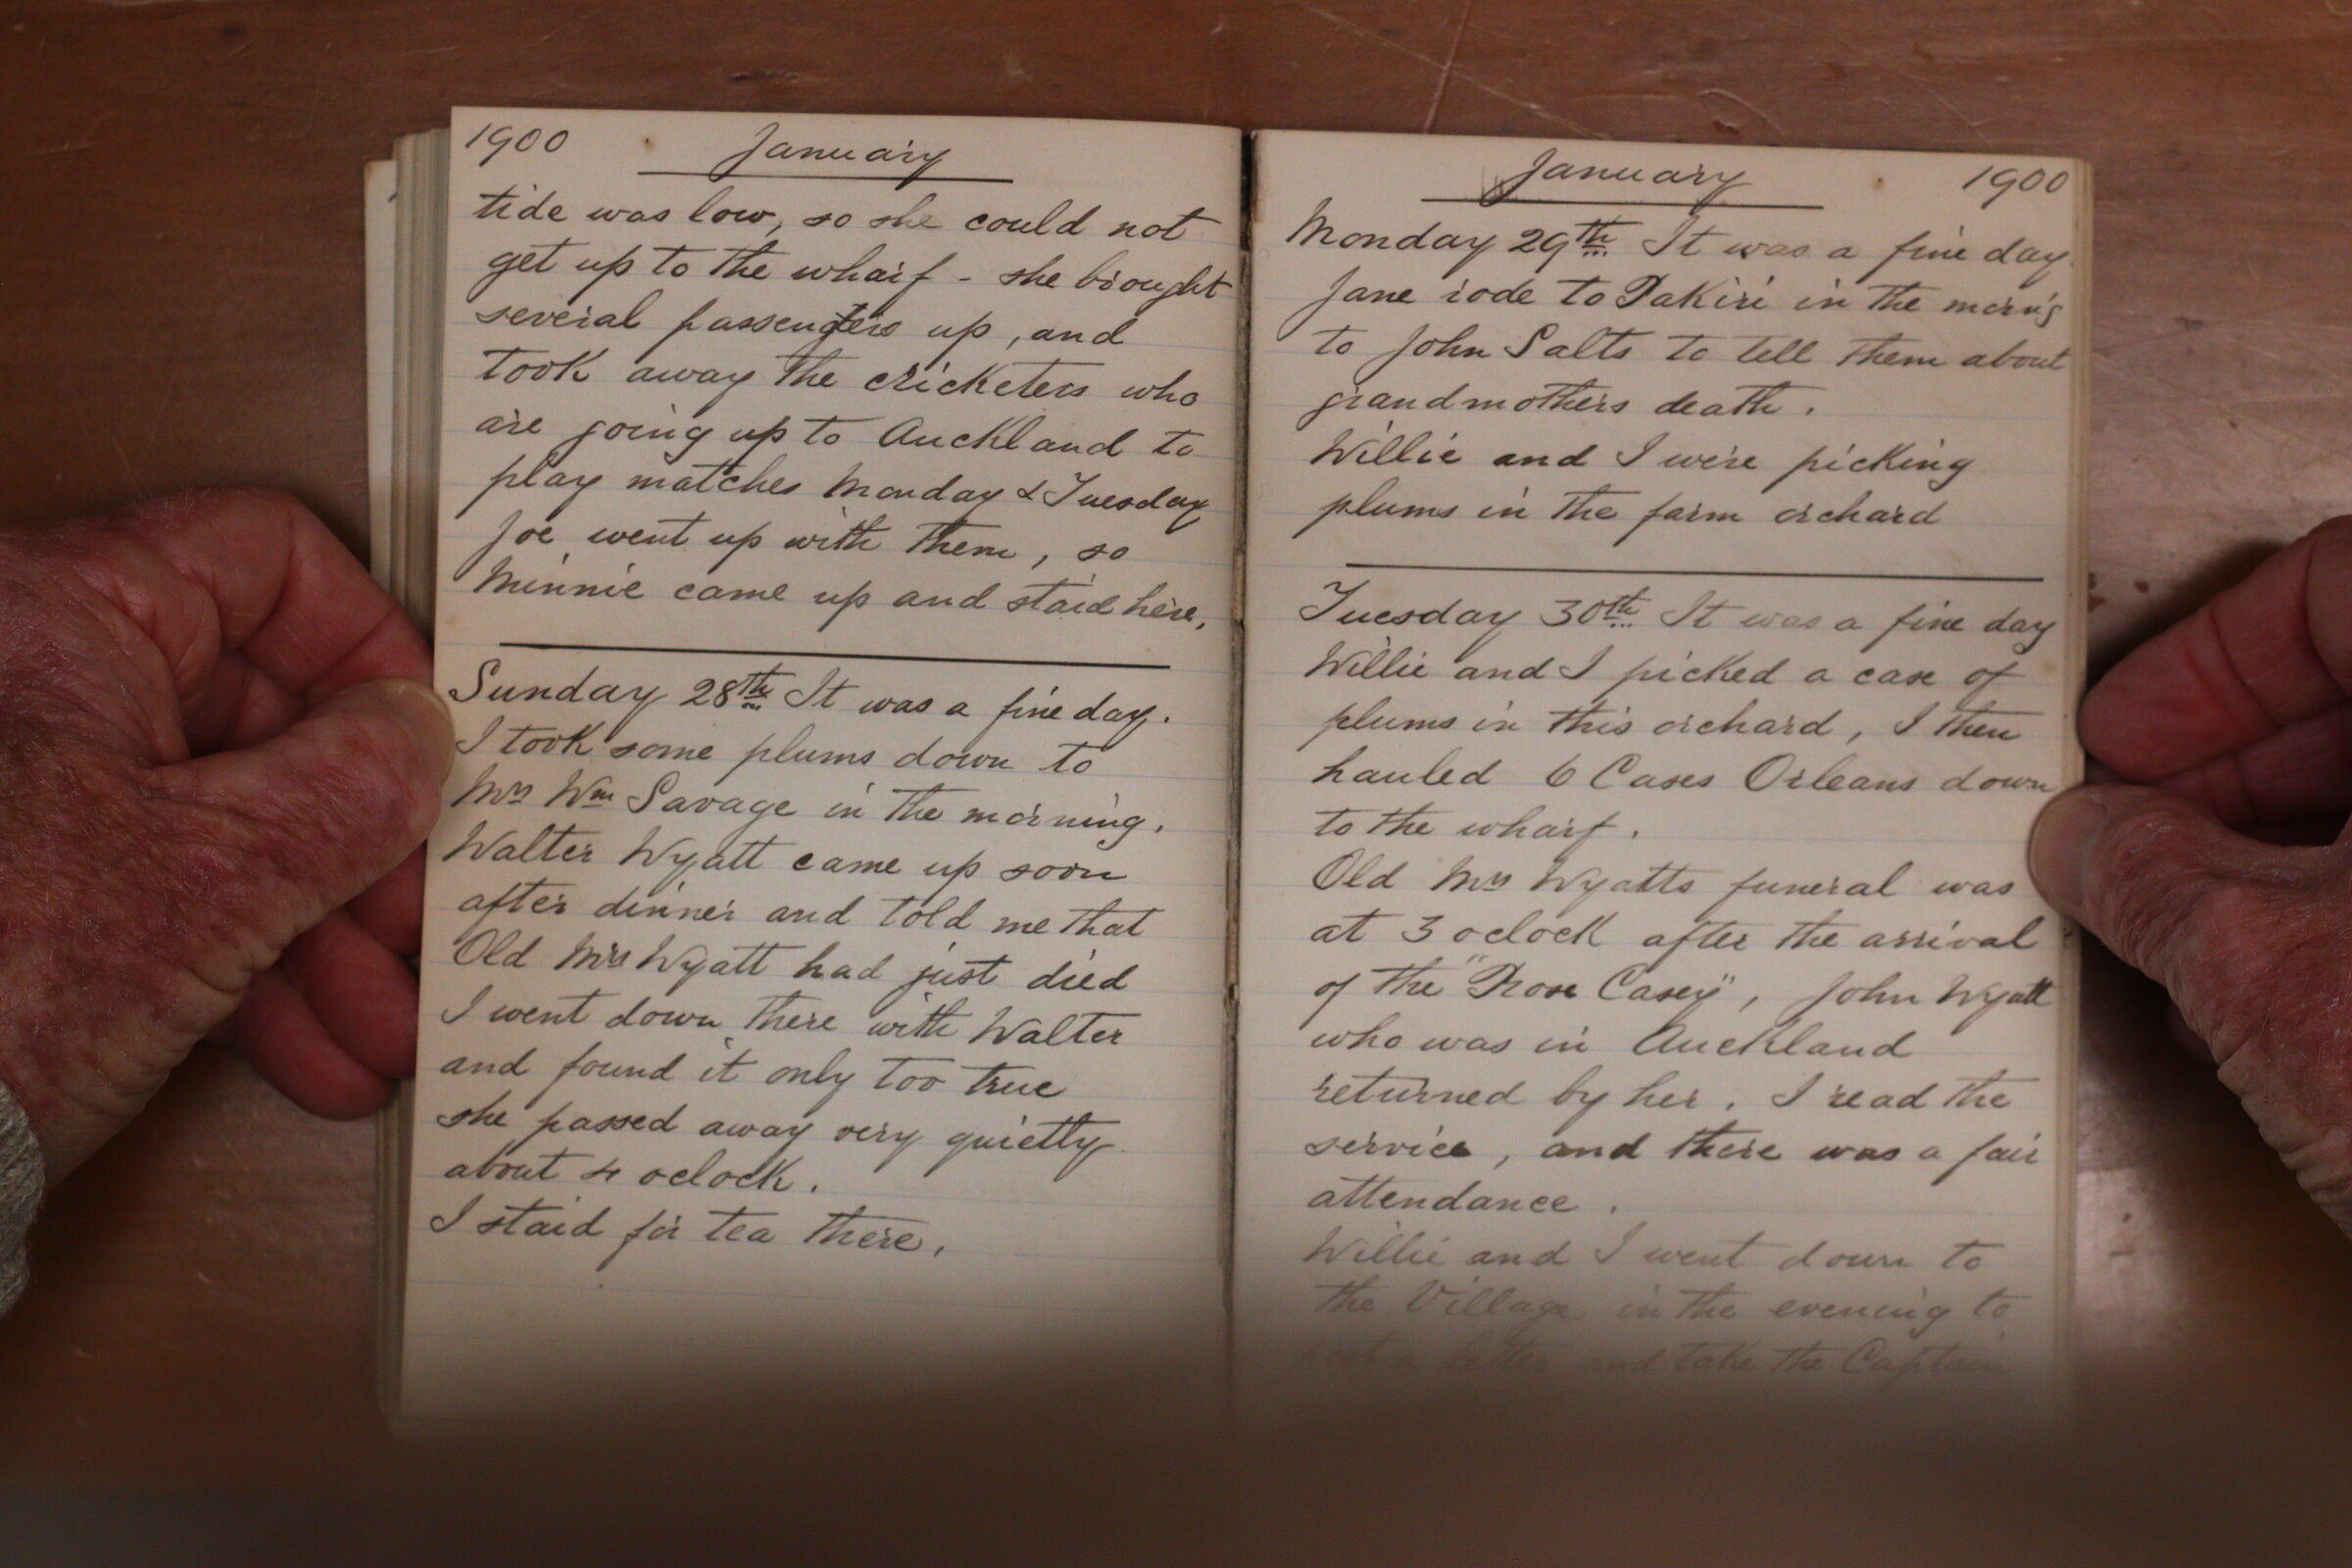 1900 January
tide was low, so she could not
get up to the wharf - she brought
several passengers up, and
took away the cricketers who
are going up to Auckland to
play matches Monday & Tuesday
Joe went up with them, so
Minnie came up and staid here.
Sunday 28th It was a fine day.
I took some plums down to
Mrs Wm Savage in the morning.
Walter Wyatt came up soon
after dinner and told me that
Old Mrs Wyatt had just died
I went down there with Walter
and found it only too true
she passed away very quietly
about 4 oclock.
I staid for tea there.
January 1900
Monday 29th It was a fine day.
Jane rode to Pakiri in the morng
to John Salts to tell them about
grandmothers death.
Willie and I were picking
plums in the farm orchard
Tuesday 30th It was a fine day
Willie and I picked a case of
plums in this orchard, I then
hauled 6 Cases Orleans down
to the wharf.
Old Mrs Wyatts funeral was
at 3 oclock after the arrival
of the "Rose Casey", John Wyatt
who was in Auckland
returned by her. I read the
service, and there was a fair
attendance.
Willie and I went down to
the Village in the evening to
post a letter and take the Captain